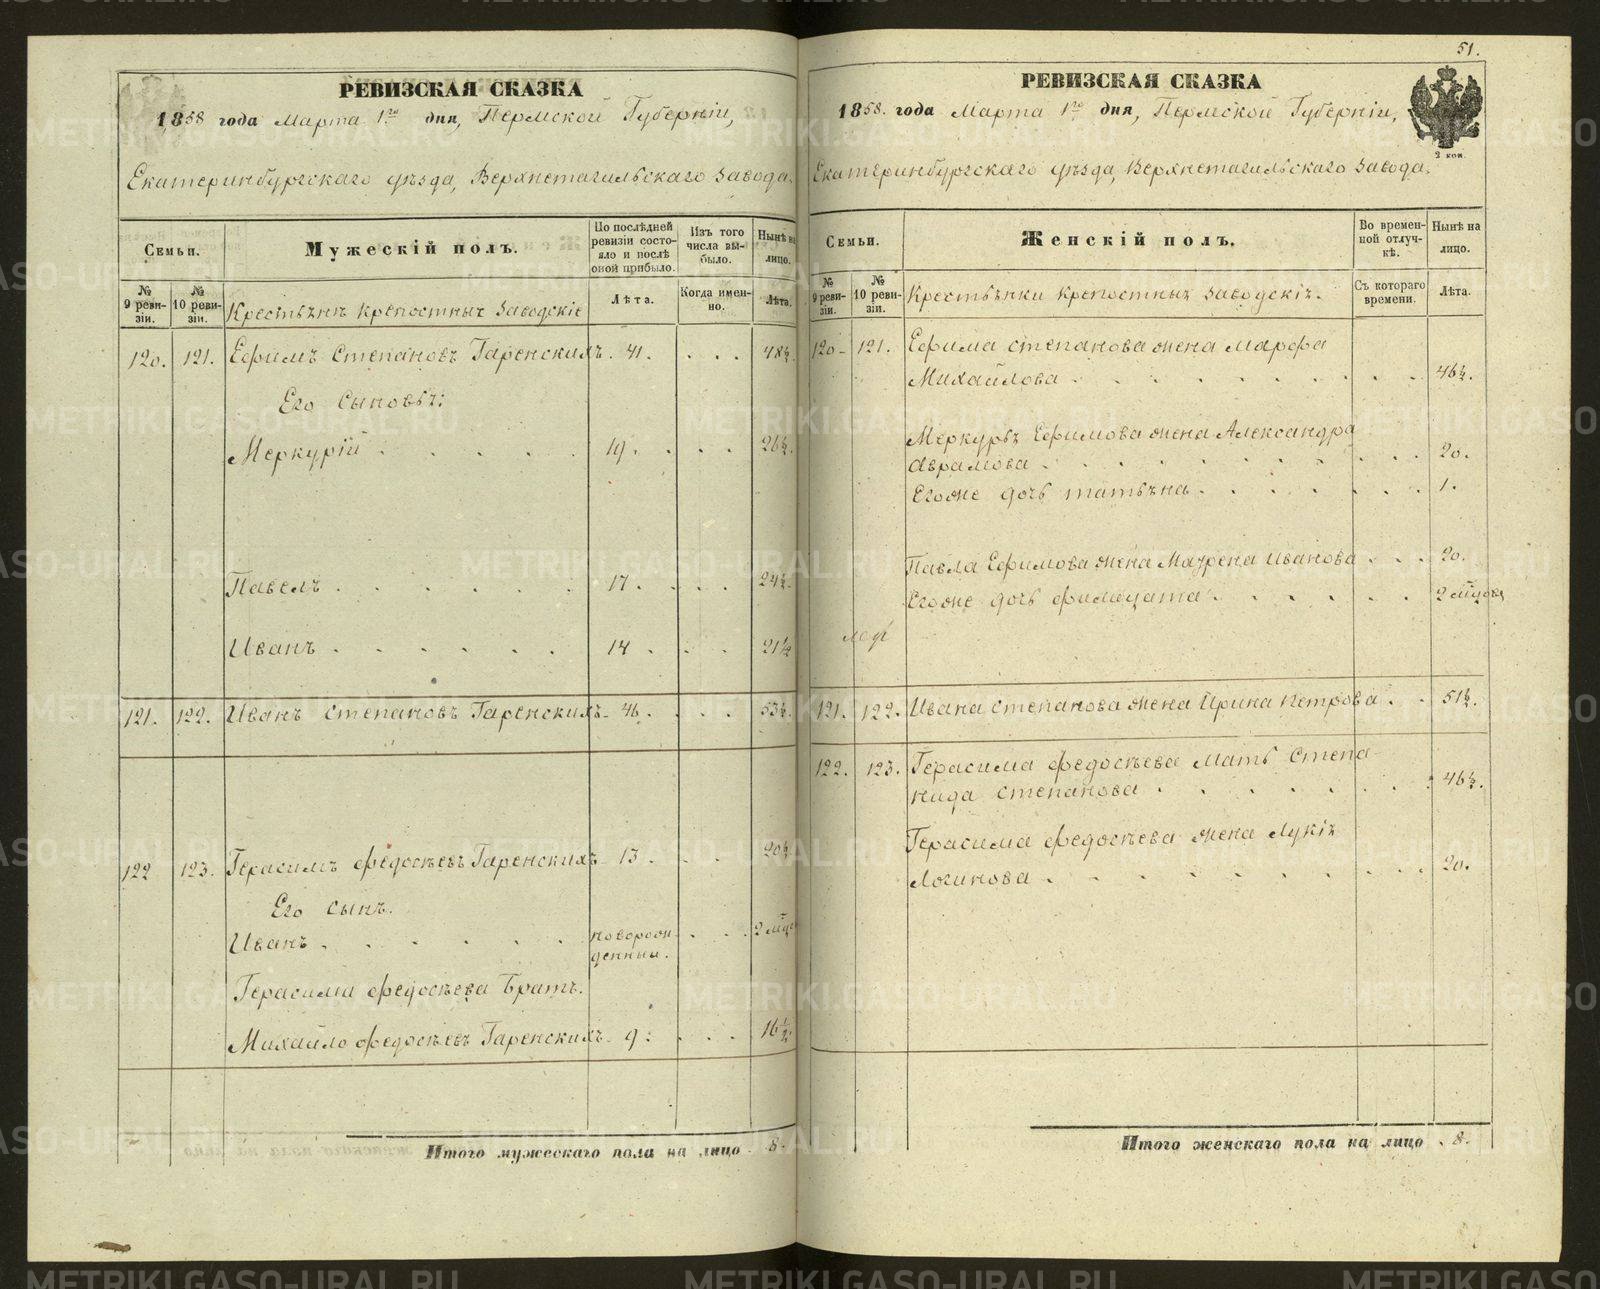 РЕВИЗСКАЯ СКАЗКА
1858 года Марта 1го дня, Пермской Губерніи,
Екатеринбургскаго уѣзда, Верхнетагильскаго Завода.
Семьи.
Мужескій полъ.
По послѣдней ревизіи состояло и послѣ оной прибыло.
Изъ того числа выбыло.
Нынѣ на лицо.
№ 9 ревизіи.
№ 10 ревизіи.
Крестьянѣ крепостныѣ Заводскіе
Лѣта.
Когда именно.
Лѣта.
120. 121. Ефимъ Степановъ Гаренскихъ. 41. 48½.
Его сыновья:
Меркурій 19. 26½.
Павелъ 17. 24½.
Иванъ 14. 21½
121. 122. Иванъ Степановъ Гаренскихъ. 46. 53½.
122 123. Герасимъ Федосѣевъ Гаренскихъ 13. 20½
Его сынъ.
Иванъ новорож-
денный.
Герасима Федосѣева Братъ.
Михайло Федосѣевъ Гаренскихъ 9. 16½
Итого мужескаго пола на лицо 8.
51.
РЕВИЗСКАЯ СКАЗКА
1858. года Марта 1го дня, Пермской Губерніи,
2 коп.
Екатеринбургскаго уѣзда, Верхнетагильскаго Завода.
Семьи.
Женскій полъ.
Во временной отлучкѣ.
Нынѣ на лицо.
№ 9 ревизіи.
№ 10 ревизіи.
Крестьянки крепостныѣ Заводскіѣ.
Съ котораго времени.
Лѣта.
120 121. Ефима Степанова жена Марфа
Михайлова 46½.
Меркурья Ефимова жена Александра
Аврамова 20.
Егоже дочь татьяна 1.
Павла Ефимова жена Маурена Иванова 20.
Егоже дочь филицата 2
121. 122. Ивана Степанова жена Ирина Петрова 51½.
122. 123. Герасима Федосѣева Мать Степа
нида Степанова 46½.
Герасима Федосѣева жена Лукія
Логинова 20.
Итого женскаго пола на лицо 8.
METRIKI.GASO-URAL.RU